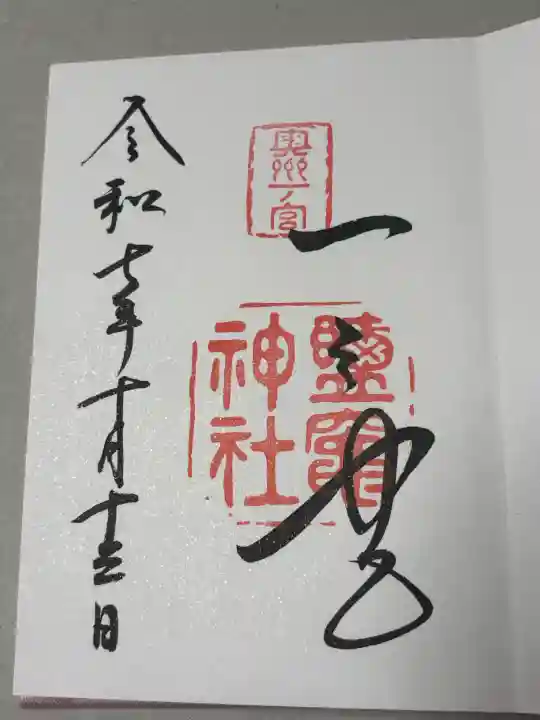 奥州一ノ宮
一之宮
鹽竈
神社
令和七年十月十三日